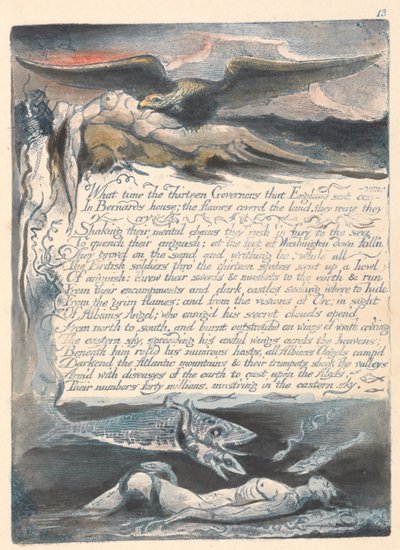 13
What time the thirteen Governors that England sent con-
-vene
In Bernards house; the flames coverd the land, they rouze they
cry
Shaking their mental chains they rush in fury to the sea
To quench their anguish; at the feet of Washington down fall'n
They grovel on the sand and writhing lie, while all
The British soldiers thro' the thirteen states sent up a howl
Of anguish: threw their swords & muskets to the earth & ran
From their encampments and dark castles seeking where to hide
From the grim flames; and from the visions of Orc; in sight
Of Albions Angel; who enrag'd his secret clouds open'd
From north to south, and burnt outstretchd on wings of wrath cov'ring
The eastern sky, spreading his awful wings across the heavens;
Beneath him rolld his num'rous hosts, all Albions Angels camp'd
Darkend the Atlantic mountains & their trumpets shook the valleys
Arm'd with diseases of the earth to cast upon the Abyss,
Their numbers forty millions, must'ring in the eastern sky.